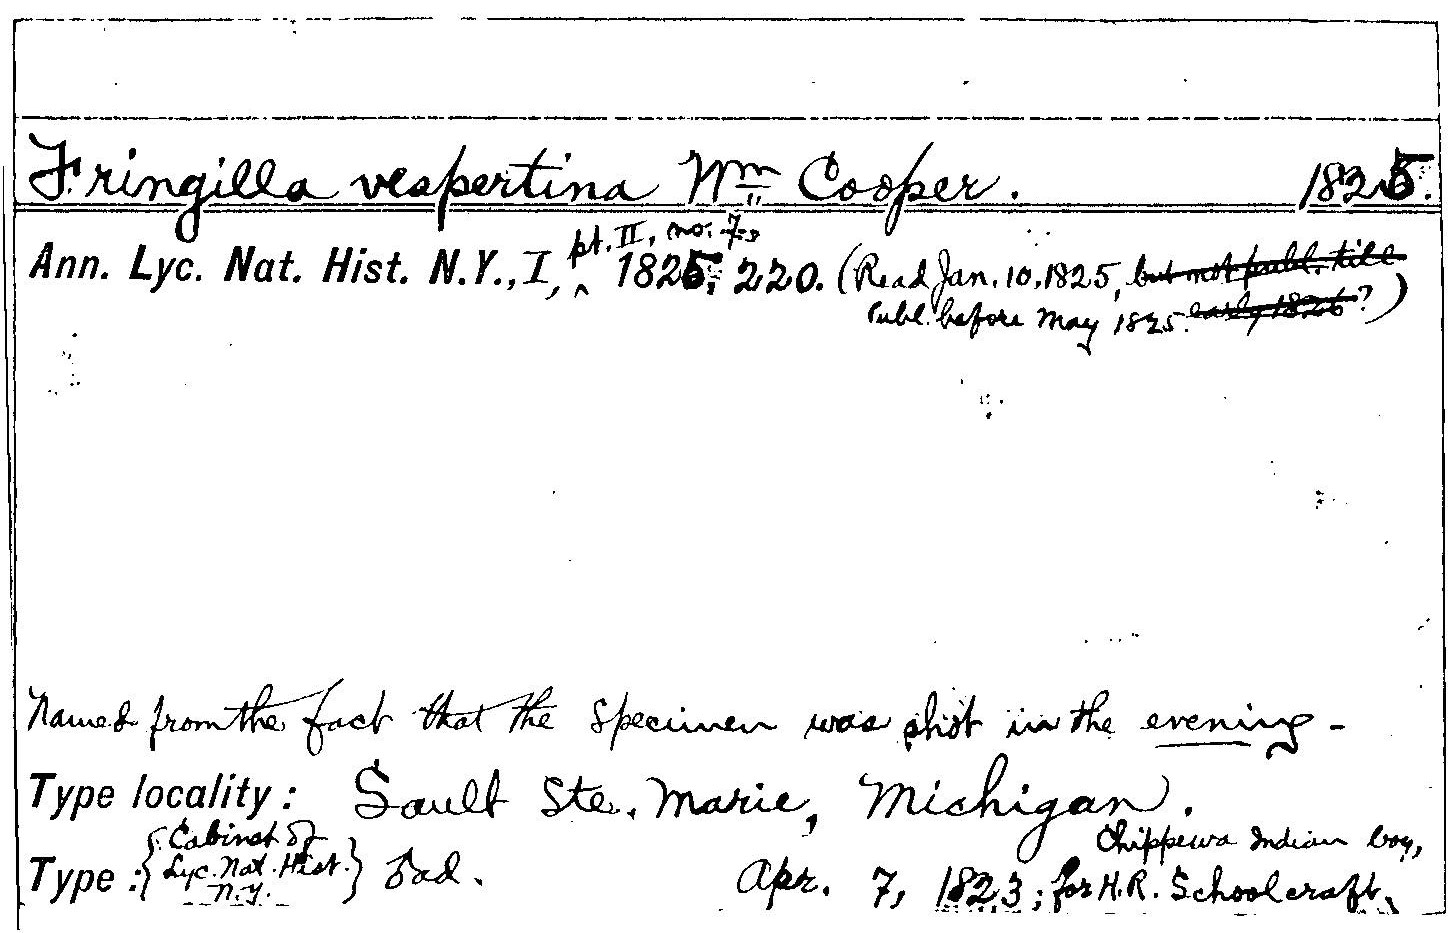 Fringilla vespertina Wm Cooper. 1825.
pt. II, no. 7,
Ann. Lyc. Nat. Hist. N.Y., I, ^ 1825, 220. (Read Jan. 10, 1825, but not publ. till
Publ. before May 1825. early 1826?)
Named from the fact that the specimen was shot in the evening -
Type locality: Sault Ste. Marie, Michigan.
Chippewa Indian boy,
Type: {Cabinet of Lyc. Nat. Hist. N.Y.} ad. Apr. 7, 1823; for H.R. Schoolcraft.